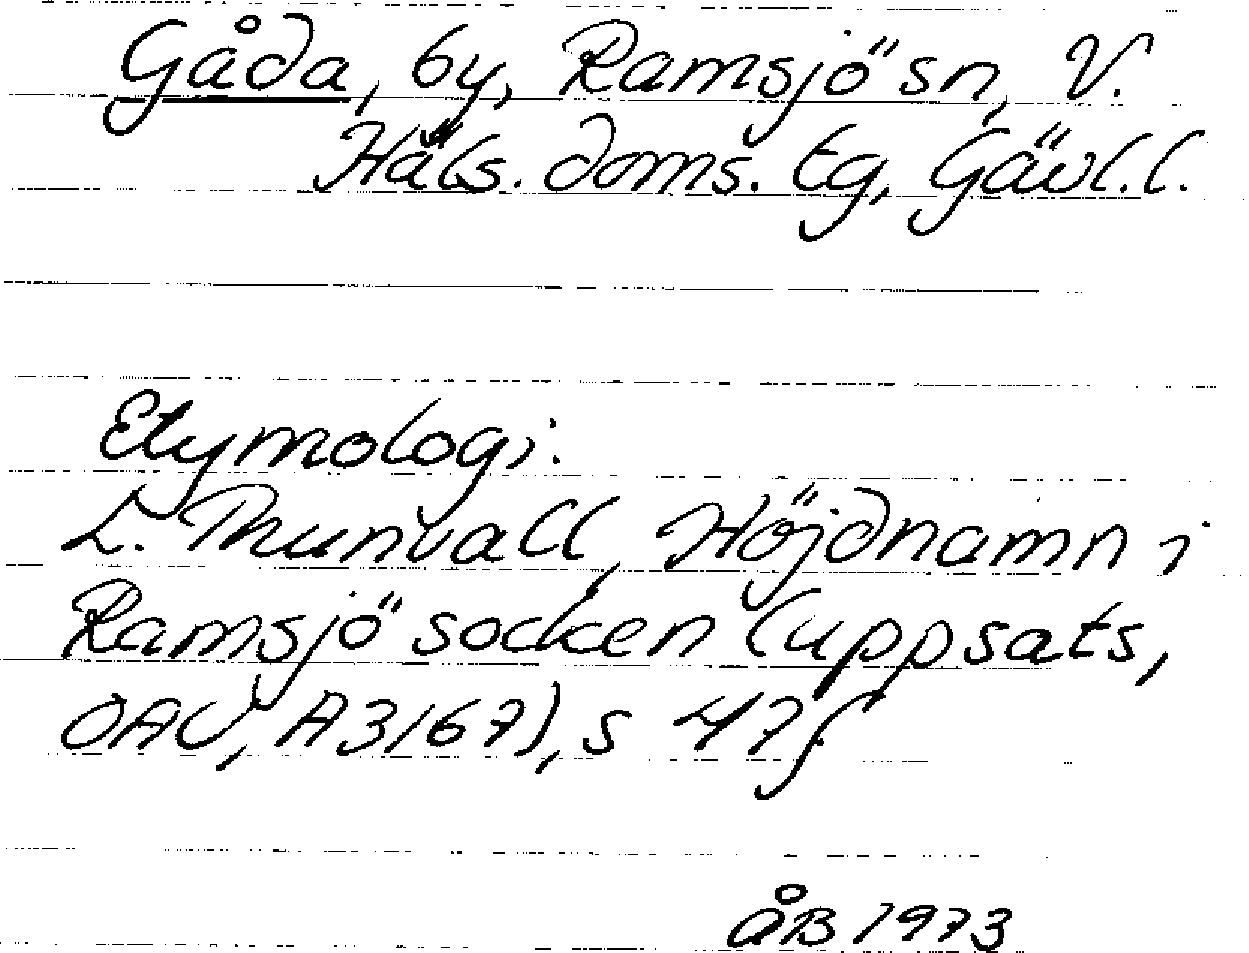 Gåda, by, Ramsjö sn, V.
Häls. doms. tg, Gävl. l.
Etymologi:
L. Thunvall, Höjdnamn i
Ramsjö socken (uppsats,
OAU, A3167), s 47f.
ÅB 1973